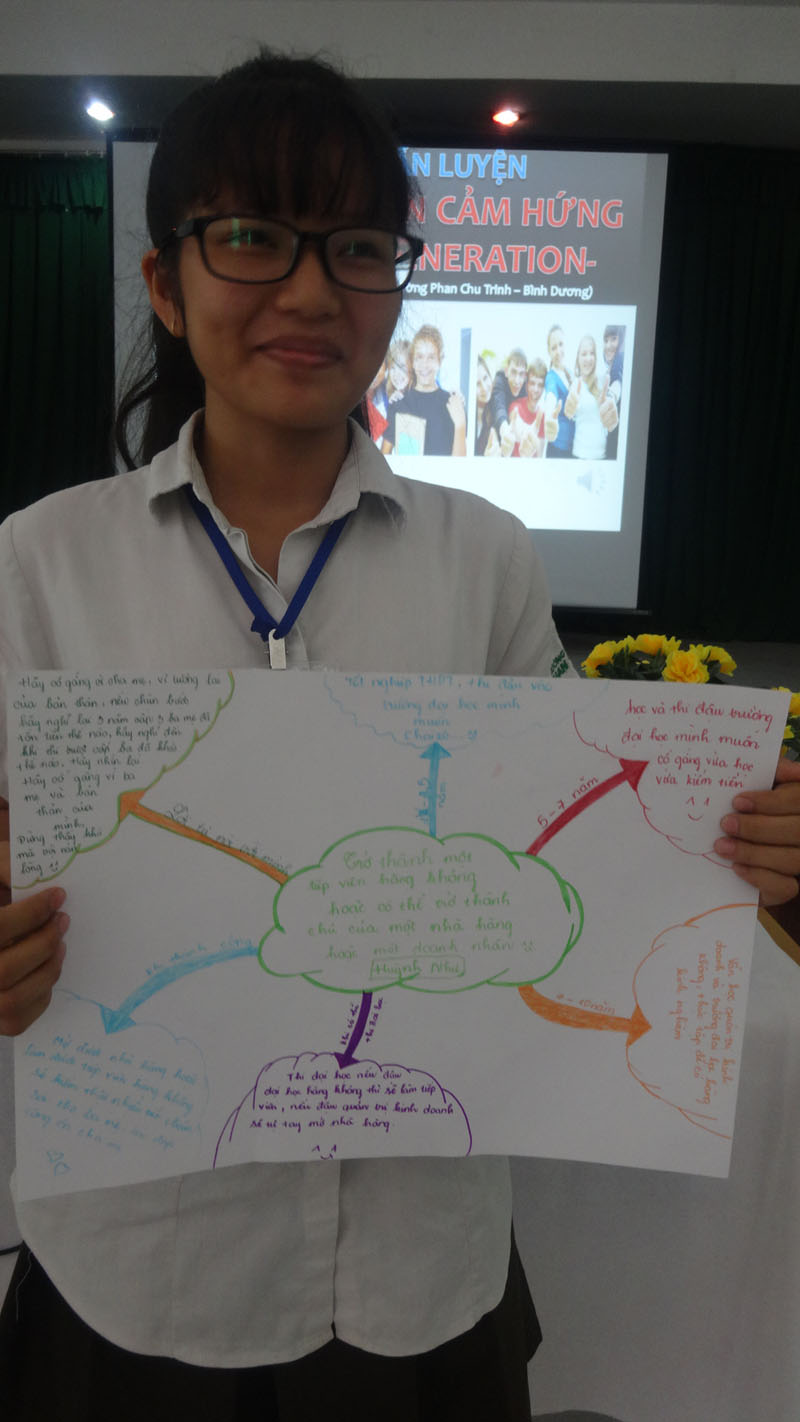 ẤN LUYỆN
CẢM HỨNG
NERATION-
ờng Phan Chu Trinh – Bình Dương)
Hãy cố gắng vì cha mẹ, vì tương lai
của bản thân, nếu chùn bước
hãy nghĩ lại 3 năm cấp 3 ba mẹ đã
tốn tiền thế nào, hãy nghĩ đến
khi thi vượt cấp ba đã khó
thế nào. Hãy nhìn lại
Hãy cố gắng vì ba
mẹ và bản
thân của
mình.
Đừng thấy khó
mà vội nản
lòng
Tốt nghiệp THPT, thi đậu vào
trường đại học mình
muốn
năm
học và thi đậu trường
đại học mình muốn
cố gắng vừa học
vừa kiếm tiền
^_^
5-7 năm
Trở thành một
tiếp viên hàng không
hoặc có thể trở thành
chủ của một nhà hàng
hoặc một doanh nhân
Huỳnh Như
khi thành công
năm
Vẫn học quản trị kinh
doanh và trường đại học hàng
không, thực tập để có
kinh nghiệm
Mở được nhà hàng hoặc
làm được tiếp viên hàng không
sẽ
cha mẹ
Thi đại học nếu đậu
đại học hàng không thì sẽ làm tiếp
viên, nếu đậu quản trị kinh doanh
sẽ tự tay mở nhà hàng.
^_^